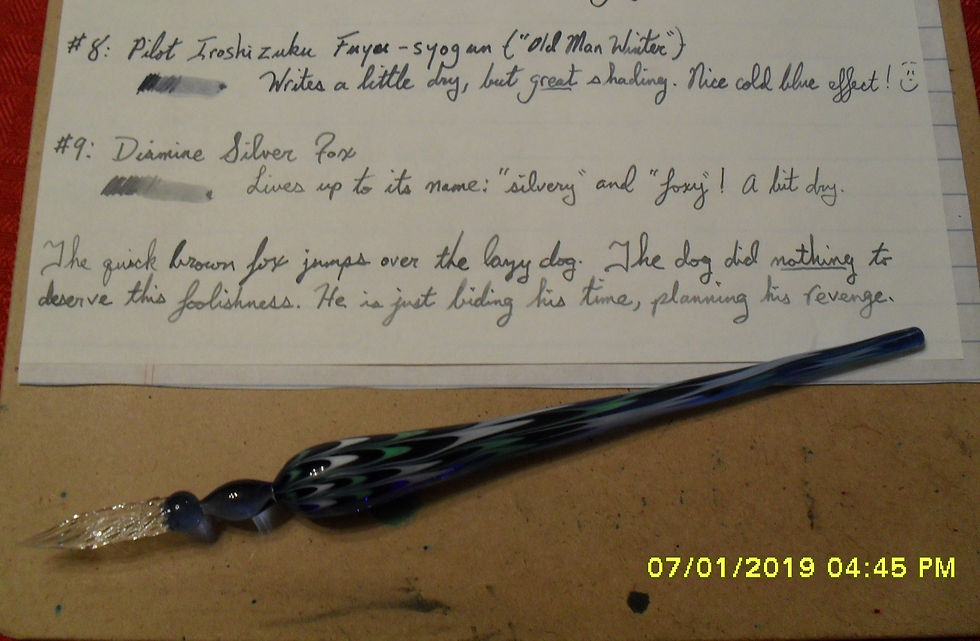 #8: Pilot Iroshizuku Fuyu-syogun ("Old Man Winter")
Writes a little dry, but great shading. Nice cold blue effect!
#9: Diamine Silver Fox
Lives up to its name: "silvery" and "foxy"! A bit dry.
The quick brown fox jumps over the lazy dog. The dog did nothing to
deserve this foolishness. He is just biding his time, planning his revenge.
07/01/2019 04:45 PM